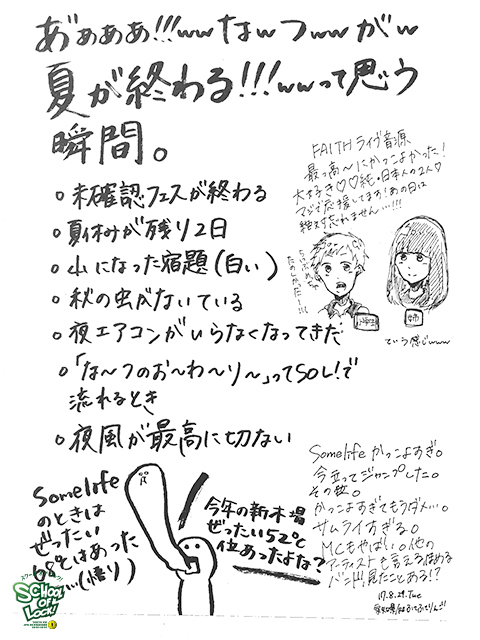 あ゛ぁぁぁぁ!!!wwなwつwwがw
夏が終わる!!!wwって思う
瞬間。
未確認フェスが終わる
夏休みが残り2日
山になった宿題(白い)
秋の虫がないている
夜エアコンがいらなくなってきだ
「な〜つのお〜わ〜り〜」ってSOL!で
流れるとき
夜風が最高に切ない
FAITHライヴ音源
最っ高〜にかっこよかった!
大好き♡♡純・日本人の2人♡
マジで応援してます!あの日は
絶対忘れません…!!!
ていう感じwww
Somelife
のときは
ぜったい
68°とはあった
…(悟り)
今年の新木場
ぜったい52°と
位あったよな?
Somelifeかっこよすぎ。
今立ってジャンプした。
その位。
かっこよすぎてもうダメ…。
サムライすぎる。
MCもやばい。他の
アーティストも言える位める
バンド、見たことある!?
17.8.29.Tue
SCHOOL
OF
LOCK!